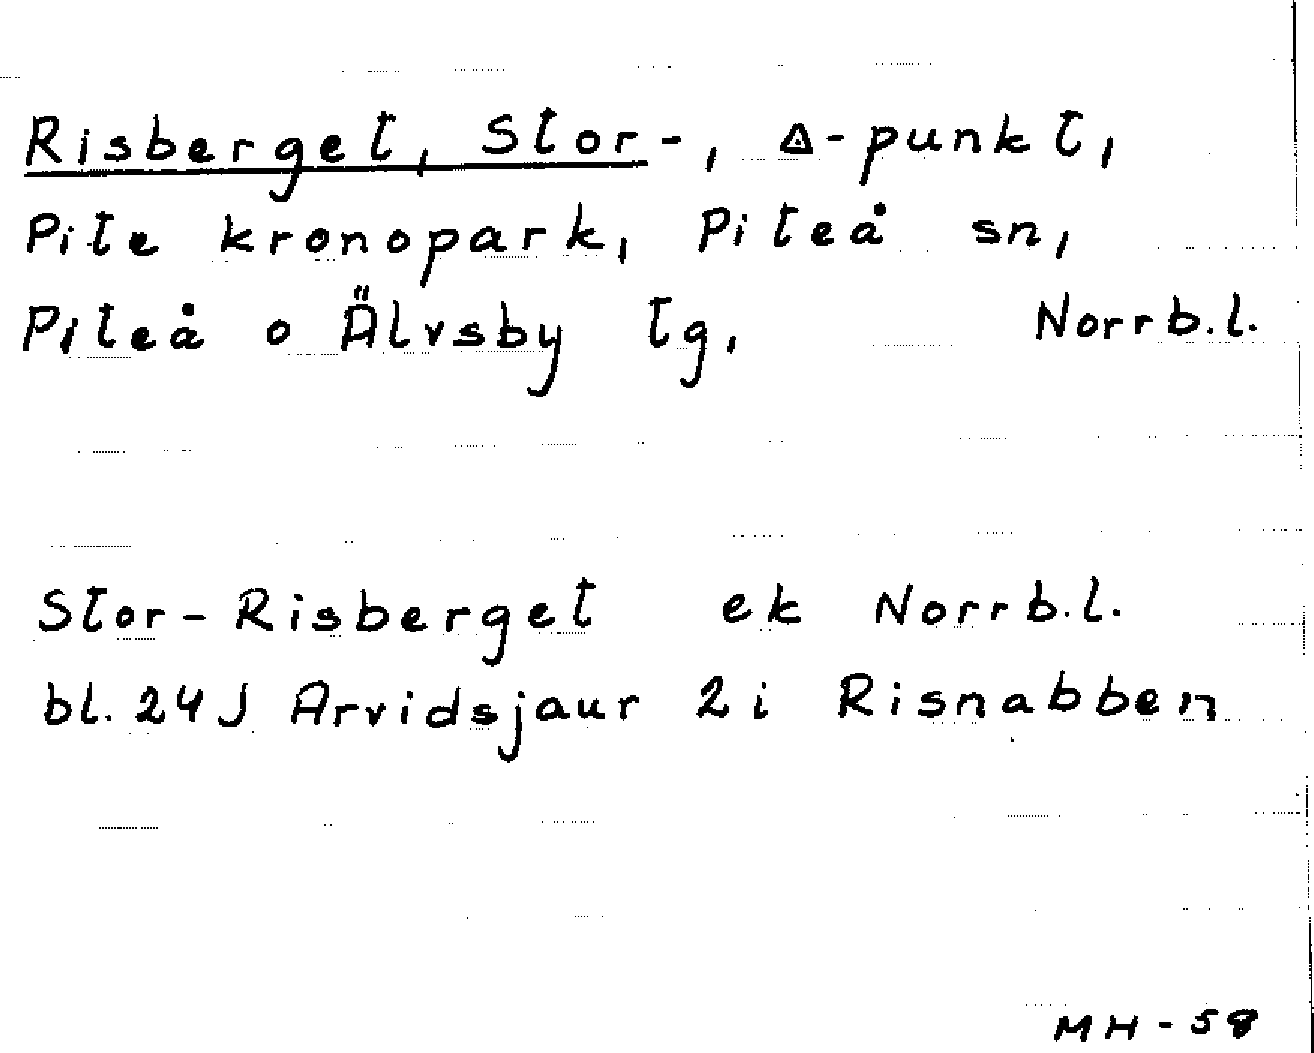 Risberget, Stor-, Δ-punkt,
Pite kronopark, Piteå sn,
Piteå o Älvsby tg, Norrb.l.
Stor-Risberget ek Norrb.l.
bl. 24J Arvidsjaur 2i Risnabben
MH-58